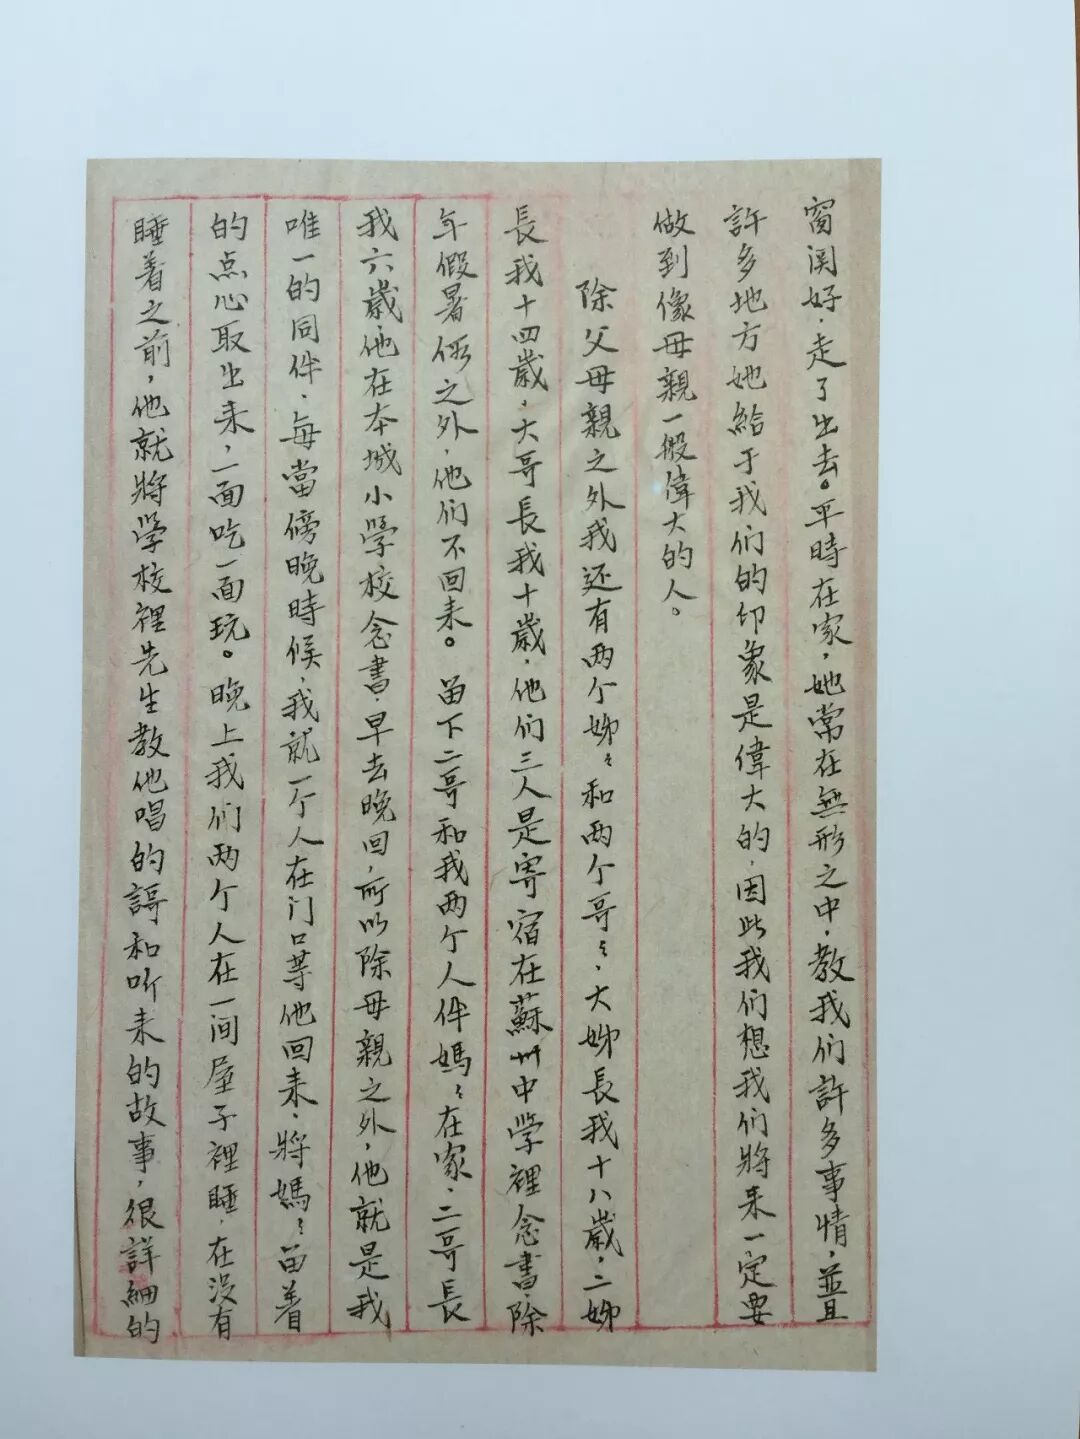 窗関好，走了出去。平時在家，她常在無形之中，教我们許多事情，並且
許多地方她給于我们的印象是偉大的，因此我们想我们將来一定要
做到像母親一般偉大的人。
除父母親之外我还有两个姊〻和两个哥〻，大姊長我十八歲，二姊
長我十四歲，大哥長我十歲，他们三人是寄宿在蘇州中学裡念書，除
年假暑假之外，他们不回来。留下二哥和我两个人伴媽〻在家，二哥長
我六歲他在本城小学校念書，早去晚回，所以除母親之外，他就是我
唯一的同伴，每當傍晚時候，我就一个人在门口等他回来，將媽〻留着
的点心取出来，一面吃一面玩。晚上我们两个人在一间屋子裡睡，在没有
睡着之前，他就將学校裡先生教他唱的謌和听来的故事，很詳細的